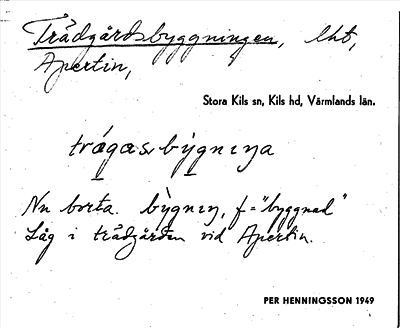 Trädgårdsbyggningen, lht,
Apertin,
Stora Kils sn, Kils hd, Värmlands län.
trágas bỳgnıŋa
Nu borta. bỳgnıŋ, f = "byggnad"
Låg i trädgården vid Apertin.
PER HENNINGSSON 1949